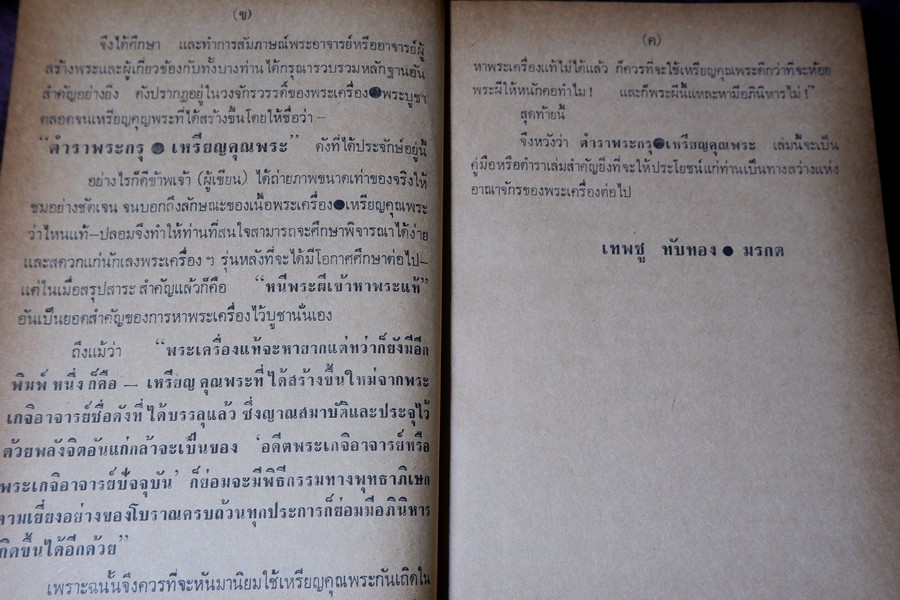 (ข)
จึงได้ศึกษา และทำการสัมภาษณ์พระอาจารย์หรืออาจารย์ผู้
สร้างพระและผู้เกี่ยวข้องกับทั้งบางท่านได้กรุณารวบรวมหลักฐานอัน
สำคัญอย่างยิ่ง ดังปรากฏอยู่ในวงจักรวรรดิ์ของพระเครื่อง●พระบูชา
ตลอดจนเหรียญคุณพระที่ได้สร้างขึ้นโดยให้ชื่อว่า –
“ตำราพระกรุ ● เหรียญคุณพระ” ดังที่ได้ประจักษ์อยู่นี้
อย่างไรก็ดีข้าพเจ้า (ผู้เขียน) ได้ถ่ายภาพขนาดเท่าของจริงให้
ชมอย่างชัดเจน จนบอกถึงลักษณะของเนื้อพระเครื่อง●เหรียญคุณพระ
ว่าไหนแท้–ปลอมจึงทำให้ท่านที่สนใจสามารถจะศึกษาพิจารณาได้ง่าย
และสดวกแก่นักเลงพระเครื่อง ๆ รุ่นหลังที่จะได้มีโอกาศศึกษาต่อไป–
แต่ในเมื่อสรุปสาระ สำคัญแล้วก็คือ “หนีพระผีเข้าหาพระแท้”
อันเป็นยอดสำคัญของการหาพระเครื่องไว้บูชานั่นเอง
ถึงแม้ว่า “พระเครื่องแท้จะหายากแต่ทว่าก็ยังมีอีก
พิมพ์ หนึ่ง ก็คือ — เหรียญ คุณพระที่ ได้สร้างขึ้นใหม่จากพระ
เกจิอาจารย์ชื่อดังที่ ได้บรรลุแล้ว ซึ่งญาณสมาบัติและประจุไว้
ด้วยพลังจิตอันแก่กล้าจะเป็นของ ‘อดีตพระเกจิอาจารย์หรือ
พระเกจิอาจารย์ปัจจุบัน’ ก็ย่อมจะมีพิธีกรรมทางพุทธาภิเษก
ตามเยี่ยงอย่างของโบราณครบถ้วนทุกประการก็ย่อมมีอภินิหาร
เกิดขึ้นได้อีกด้วย”
เพราะฉนั้นจึงควรที่จะหันมานิยมใช้เหรียญคุณพระกันเถิดใน
(ค)
หาพระเครื่องแท้ไม่ได้แล้ว ก็ควรที่จะใช้เหรียญคุณพระดีกว่าที่จะห้อย
พระผีให้หนักคอทำไม ! และก็พระผีนี้แหละหามีอภินิหารไม่ !”
สุดท้ายนี้
จึงหวังว่า ตำราพระกรุ●เหรียญคุณพระ เล่มนี้จะเป็น
คู่มือหรือตำราเล่มสำคัญยิ่งที่จะให้ประโยชน์แก่ท่านเป็นทางสว่างแห่ง
อาณาจักรของพระเครื่องต่อไป
เทพชู ทับทอง ● มรกต